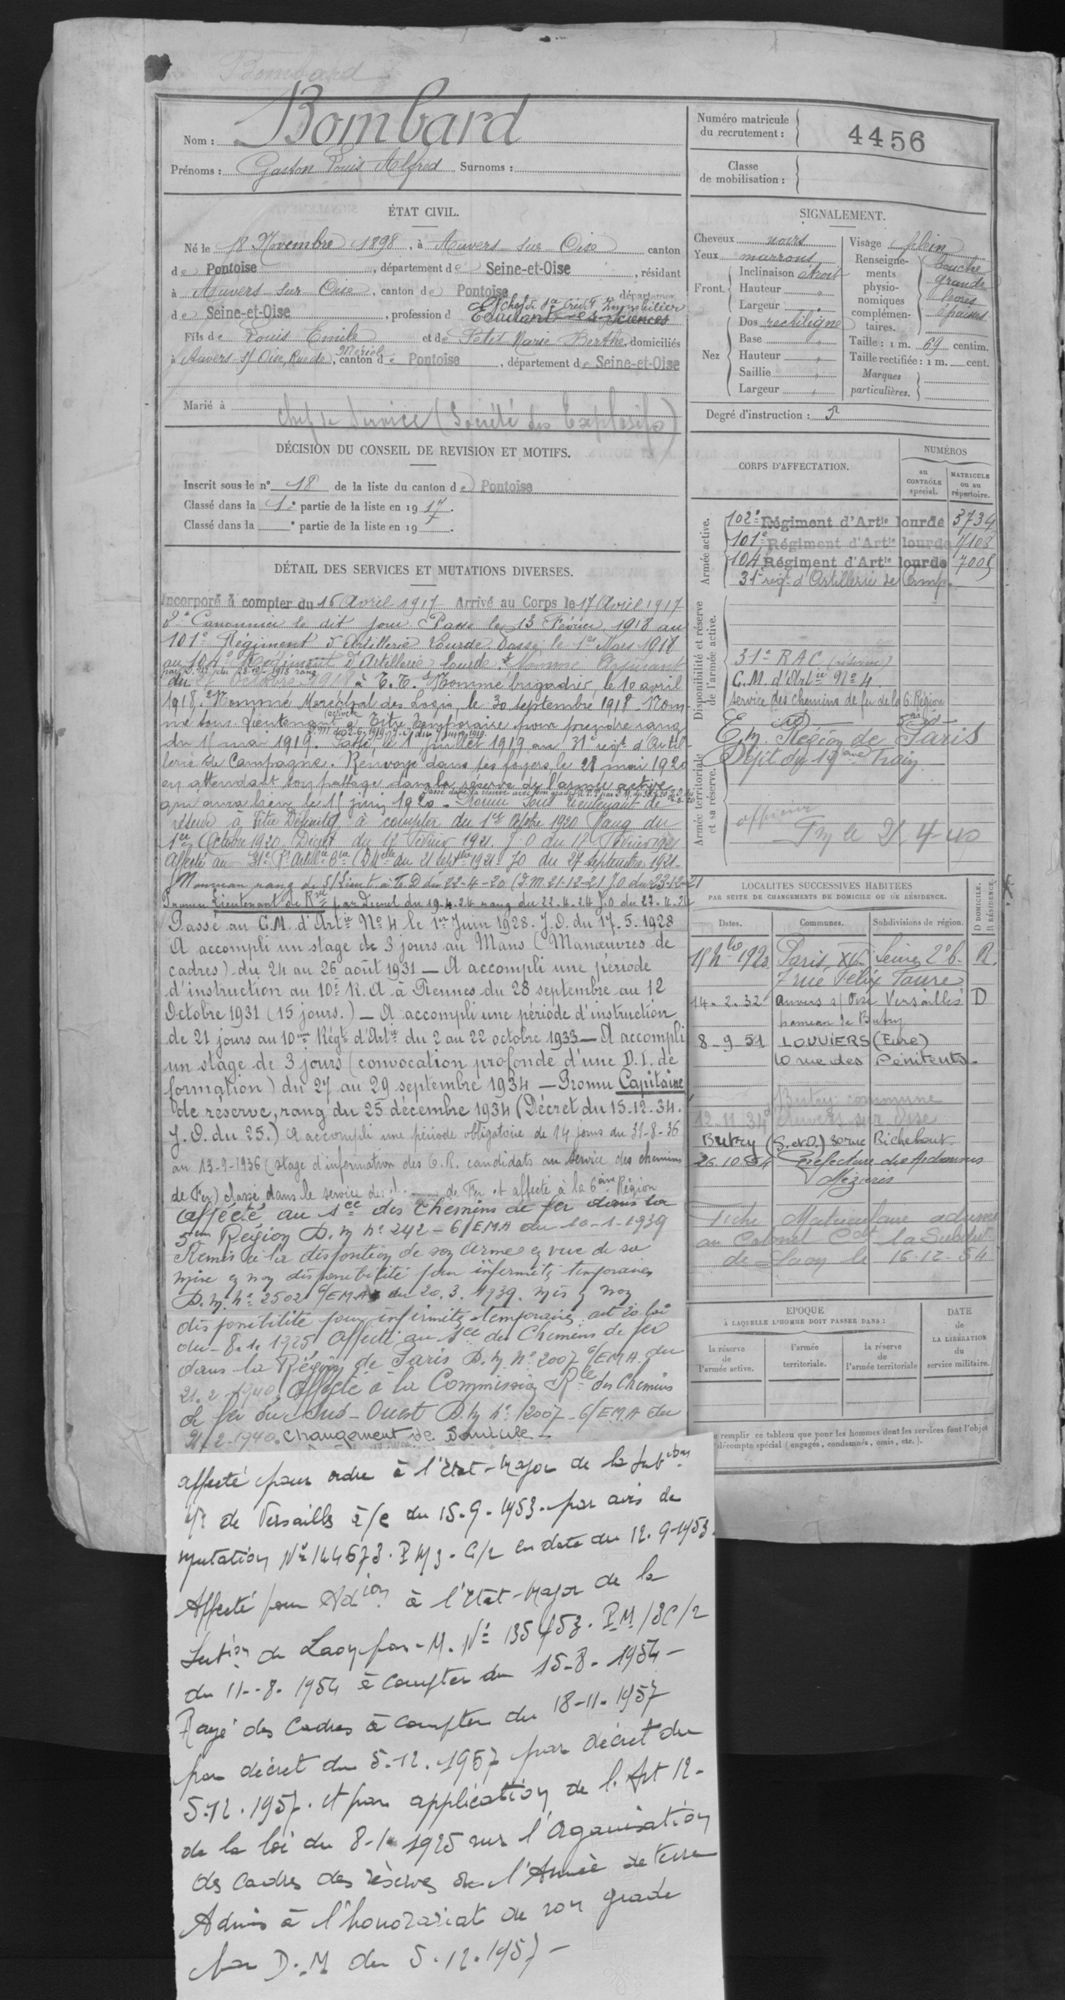 Bombard
Nom : Bombard
Prénoms : Gaston Louis Alfred Surnoms :
Numéro matricule du recrutement : 4456
Classe de mobilisation :
ÉTAT CIVIL.
Né le 18 Novembre 1898, à Auvers sur Oise canton
de Pontoise, département de Seine-et-Oise, résidant
à Auvers sur Oise, canton de Pontoise département
de Seine-et-Oise, profession d Etudiant ès-sciences
Fils de Louis Emile et de Petit Marie Berthe, domiciliés
à Auvers s/ Oise, Rue de Mériel, canton de Pontoise, département de Seine-et-Oise
Marié à
chef de service (Société des Explosifs)
SIGNALEMENT.
Cheveux noirs
Yeux marrons
Front. Inclinaison droit
Hauteur
Largeur
Nez Dos rectiligne
Base
Hauteur
Saillie
Largeur
Visage plein
Renseignements physionomiques complémentaires. bouche grande lèvres épaisses
Taille : 1 m. 69 centim.
Taille rectifiée : 1 m. cent.
Marques particulières.
Degré d'instruction : 5
DÉCISION DU CONSEIL DE REVISION ET MOTIFS.
Inscrit sous le n° 18 de la liste du canton de Pontoise
Classé dans la 1e partie de la liste en 1917.
Classé dans la ° partie de la liste en 19
CORPS D'AFFECTATION.
NUMÉROS
au CONTRÔLE spécial.
MATRICULE ou au répertoire.
Armée active.
102e Régiment d'Artie lourde 3734
101e Régiment d'Artie lourde 7108
104 Régiment d'Artie lourde 7005
31e rég. d'Artillerie de Camp.
Disponibilité et réserve de l'armée active.
31e RAC (réserve)
C.M. d'Artie N° 4
service des chemins de fer de la 6 Région
E.M. Région de Paris
Dépôt du 19ème Train
Armée territoriale et sa réserve.
officier
DÉTAIL DES SERVICES ET MUTATIONS DIVERSES.
Incorporé à compter du 16 Avril 1917 Arrivé au Corps le 17 Avril 1917
2e Canonnier le dit jour. Passé le 13 Février 1918 au
101e Régiment d'Artillerie Lourde. Passé le 1er Mars 1918
au 104e Régiment d'Artillerie lourde. Nommé Aspirant
Nommé brigadier, le 10 avril
1918. Nommé Maréchal des Logis, le 30 septembre 1918. Nom
mé sous Lieutenant à titre temporaire pour prendre rang
du 1 mai 1919. Passé, le 1 juillet 1919 au 31e régt d'Artil
lerie de Campagne. Renvoyé dans ses foyers le 28 mai 1920
en attendant son passage dans la réserve de l'armée active
qui aura lieu le 15 juin 1920. Promu Sous Lieutenant de
réserve à Titre Définitif, à compter du 1er Octobre 1920 Rang du
1er Octobre 1920 Décret du 17 Février 1921. J.O du 17 Février 1921
Affecté au 31e
Nouveau rang de S/Lieut. à T.D du 22-4-20 (D.M 21-12-21 J.O du 23-12-21
Promu Lieutenant de Rve par Décret du 19.4.24 rang du 22.4.24 J.O du 27.4.24
Passé au C.M. d'Artie N° 4 le 1er Juin 1928. J.O. du 17.5.1928
A accompli un stage de 3 jours au Mans (Manœuvres de
cadres) du 24 au 26 août 1931 — A accompli une période
d'instruction au 10e R.A à Rennes du 28 septembre au 12
Octobre 1931 (15 jours.) — A accompli une période d'instruction
de 21 jours au 10ème Régt d'Artie du 2 au 22 octobre 1933 — A accompli
un stage de 3 jours (convocation profonde d'une D.I. de
formation) du 27 au 29 septembre 1934 — Promu Capitaine
de réserve, rang du 25 décembre 1934 (Décret du 15.12.34.
J.O. du 25.) A accompli une période obligatoire de 14 jours du 31-8-36
au 13-9-1936 (stage d'information des O.R. candidats au service des chemins
de Fer) Classé dans le service des de Fer et affecté à la 6ème Région
Affecté au sce des Chemins de fer dans la
5ème Région D.M. n° 242-6/EMA du 10-1-1939
Remis à la disposition de son arme en vue de sa
mise en non disponibilité pour infirmités temporaires
D.M. n° 2502 6/EMA du 20.3.1939. mis en non
disponibilité pour infirmités temporaires art 20 loi
du 8.1.1925 Affecté au sce des Chemins de fer
dans la Région de Paris D.M N° 2007 6/EMA. du
21.2.1940 Affecté à la Commission Rle des Chemins
de fer du Sud-Ouest D.M n° 2007-6/EMA du
21-2-1940. Changement de Domicile —
LOCALITES SUCCESSIVES HABITEES
PAR SUITE DE CHANGEMENTS DE DOMICILE OU DE RÉSIDENCE.
Dates. Communes. Subdivisions de région. D DOMICILE. R RÉSIDENCE.
Paris, Seine 2e b. R.
7 rue Félix Faure
14-2-32 Auvers s/ Oise Versailles D
hameau de Butry
8-9-51 LOUVIERS (Eure)
10 rue des Pénitents.
Butry commune
12.11.34 d'Auvers sur Oise
Butry (S.-et-O.) rue Richebout
26.10.54 Préfecture des Ardennes
Mézières
Fiche Matriculaire adressée
au Colonel Cdt la Subdiv.
de Laon le 16-12-54
EPOQUE
À LAQUELLE L'HOMME DOIT PASSER DANS :
la réserve de l'armée active.
l'armée territoriale.
la réserve de l'armée territoriale
DATE de LA LIBÉRATION du service militaire.
remplir ce tableau que pour les hommes dont les services font l'objet
décompte spécial (engagés, condamnés, omis, etc.).
affecté pour ordre à l'Etat-Major de la Subdon
de Versailles à/c du 15.9.1953. par avis de
mutation N° 144673. PM3-C/2 en date du 12.9-1953.
Affecté pour Adion à l'Etat-Major de la
Subdion de Laon par M. N° 135453. PM/3C/2
du 11-8-1954 à compter du 15-8-1954 —
Rayé des Cadres à compter du 18-11-1957
par décret du 5-12-1957 par décret du
5-12-1957. et par application de l'Art 12.
de la loi du 8-1-1925 sur l'Organisation
des Cadres des réserves de l'Armée de terre
Admis à l'honorariat de son grade
par D.M du 5.12.1957 —